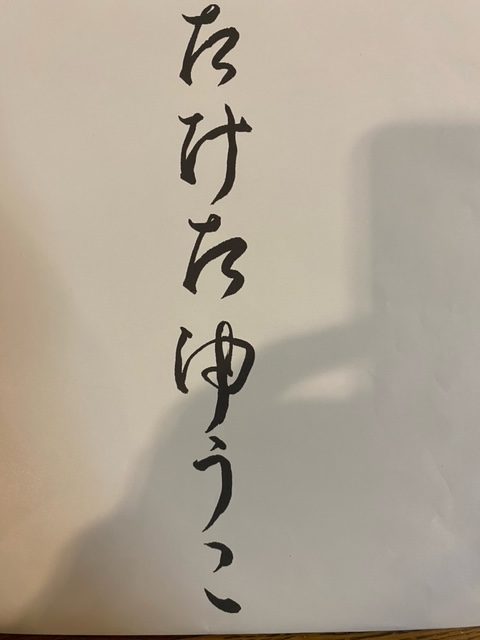 たけたゆうこ